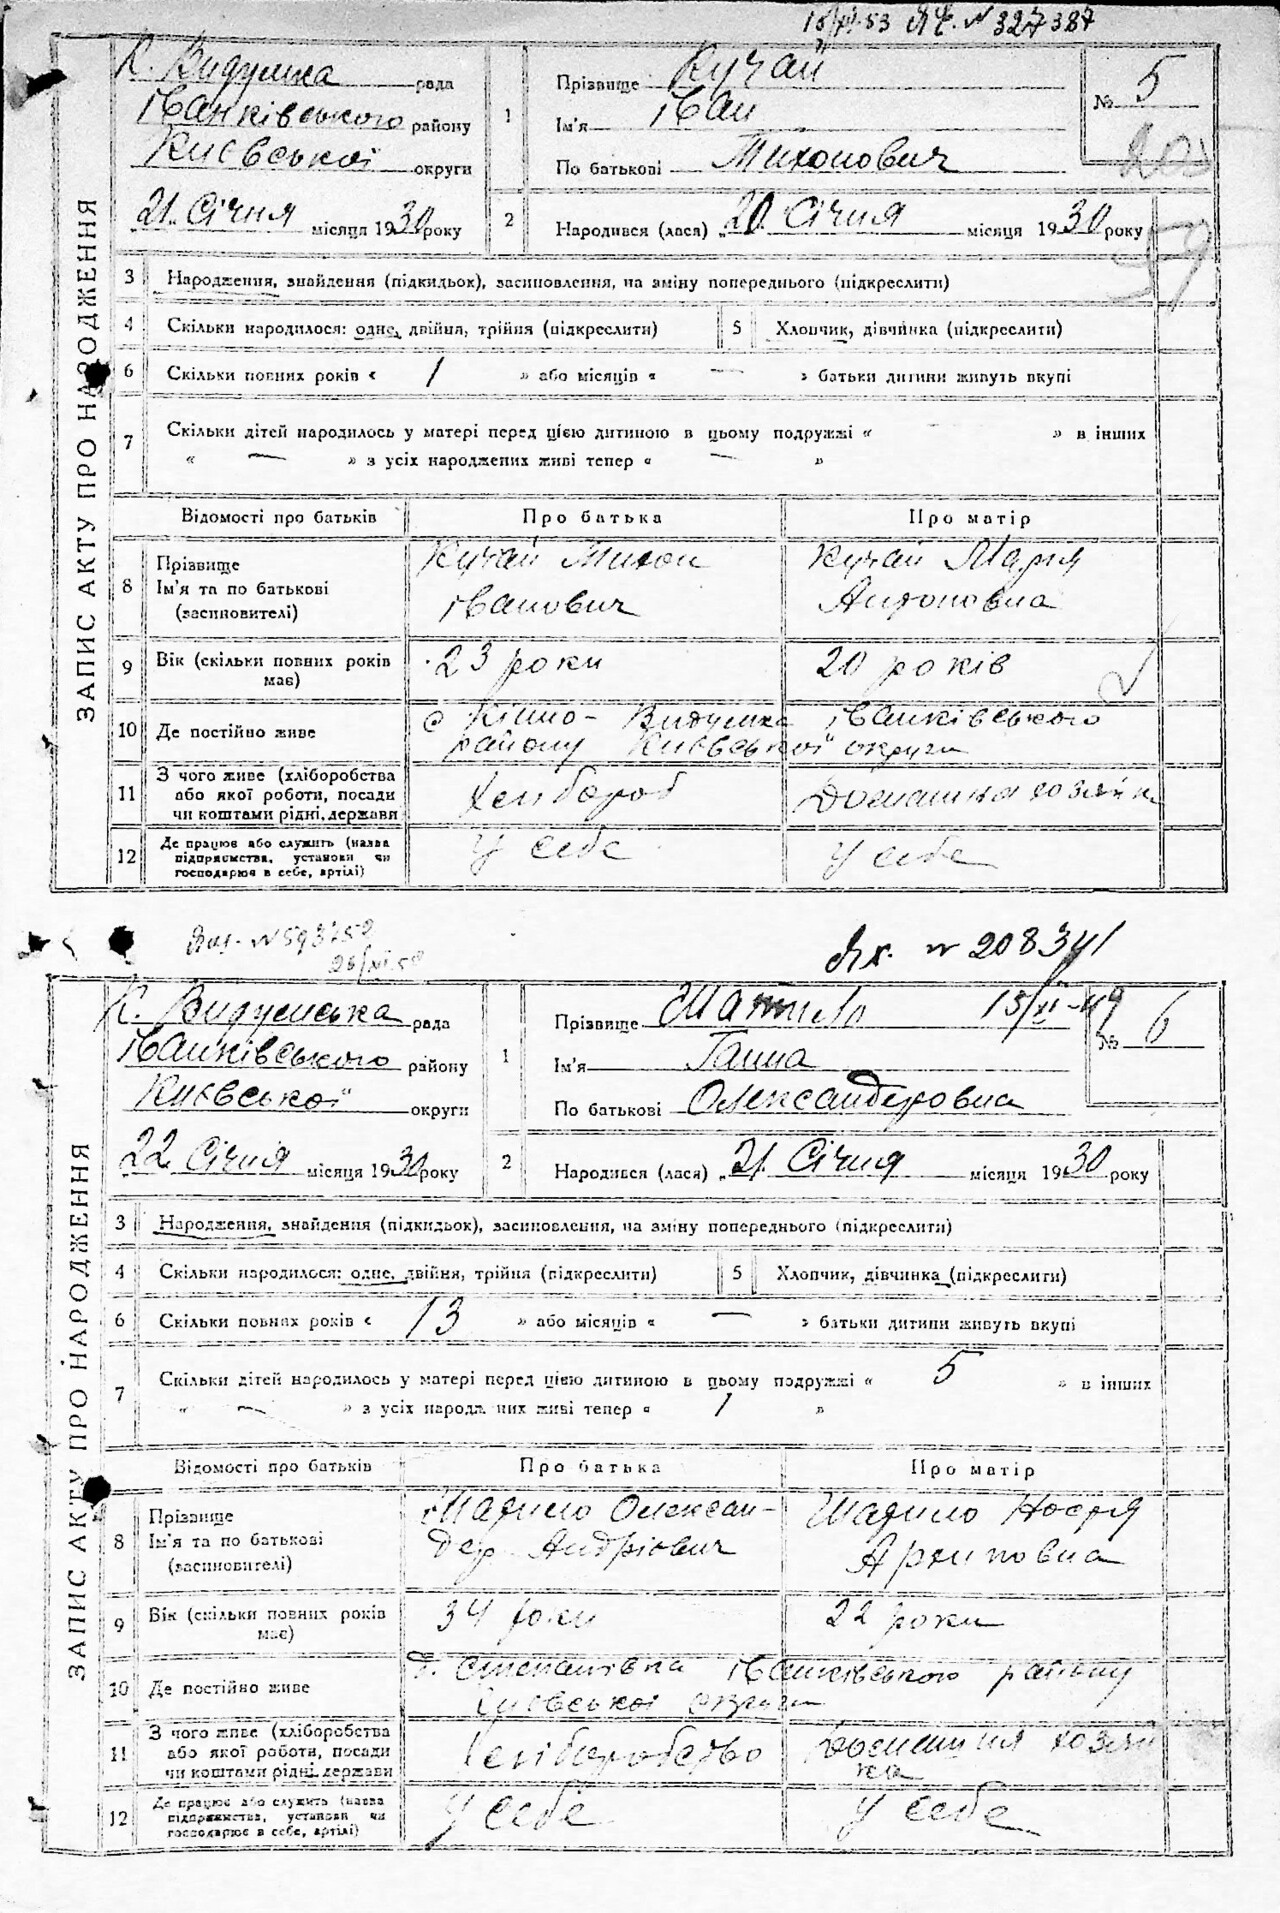 N 327387
ЗАПИС АКТУ ПРО НАРОДЖЕННЯ
К. Видумка рада
Іванківського району
Київської округи
21 Січня місяця 1930 року
1 Прізвище Кучай
Ім'я Іван
По батькові Тихонович
№ 5
2 Народився (лася) „20 Січня місяця 1930 року
3 Народження, знайдення (підкидьок), засиновлення, на зміну попереднього (підкреслити)
4 Скільки народилося: одне, двійня, трійня (підкреслити)
5 Хлопчик, дівчинка (підкреслити)
6 Скільки повних років « 1 » або місяців « — » батьки дитини живуть вкупі
7 Скільки дітей народилось у матері перед цією дитиною в цьому подружжі « » в інших
« — » з усіх народжених живі тепер « — »
Відомості про батьків Про батька Про матір
8 Прізвище
Ім'я та по батькові
(засиновителі)
Кучай Тихон
Іванович
Кучай Марія
Антоновна
9 Вік (скільки повних років
має)
23 роки
20 років
10 Де постійно живе
с Кінно-Видумка Іванківського
району Київської округи
11 З чого живе (хліборобства
або якої роботи, посади
чи коштами рідні, держави
Хлібороб
Домашня хозяйка
12 Де працює або служить (назва
підприємства, установи чи
господарює в себе, артілі)
У себе
У себе
N 208341
ЗАПИС АКТУ ПРО НАРОДЖЕННЯ
К. Видумська рада
Іванківського району
Київської округи
22 Січня місяця 1930 року
1 Прізвище Шатило
Ім'я Ганна
По батькові Олександеровна
№ 6
2 Народився (лася) „21 Січня місяця 1930 року
3 Народження, знайдення (підкидьок), засиновлення, на зміну попереднього (підкреслити)
4 Скільки народилося: одне, двійня, трійня (підкреслити)
5 Хлопчик, дівчинка (підкреслити)
6 Скільки повних років « 13 » або місяців « — » батьки дитини живуть вкупі
7 Скільки дітей народилось у матері перед цією дитиною в цьому подружжі « 5 » в інших
« — » з усіх народжених живі тепер « 1 »
Відомості про батьків Про батька Про матір
8 Прізвище
Ім'я та по батькові
(засиновителі)
Шатило Олексан-
дер Андрієвич
Шатило
Архиповна
9 Вік (скільки повних років
має)
34 роки
22 роки
10 Де постійно живе
Степанівка Іванківського району
Київської округи
11 З чого живе (хліборобства
або якої роботи, посади
чи коштами рідні, держави
Хліборобство
Домашня хозяй
ка
12 Де працює або служить (назва
підприємства, установи чи
господарює в себе, артілі)
У себе
У себе